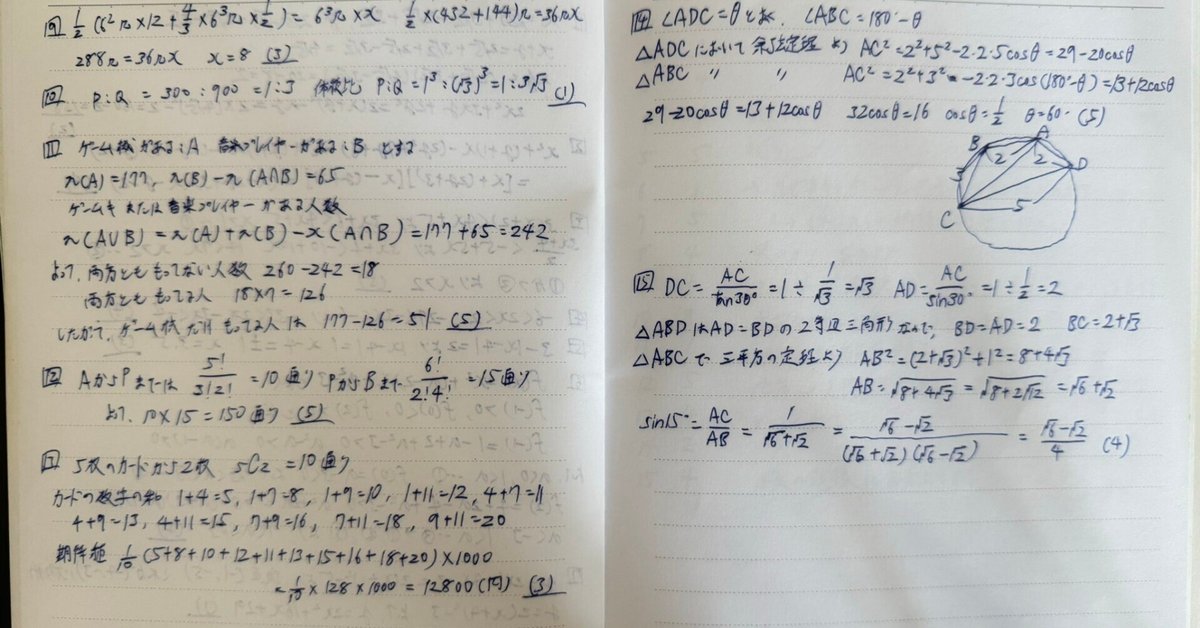 9 1/2 (6²π×12+4/3×6³π×1/2) = 6³π×x 1/2×(432+144)π=36πx
288π=36πx x=8 (3)
10 P:Q = 300:900 = 1:3 体積比 P:Q=1³:(√3)³=1:3√3 (1)
11 ゲーム機がある:A 音楽プレイヤーがある:B とする
n(A)=177, n(B)-n(A∩B)=65
ゲーム機または音楽プレイヤーがある人数
n(A∪B)=n(A)+n(B)-n(A∩B)=177+65=242
よって、両方とももってない人数 260-242=18
両方とももってる人 18×7=126
したがって、ゲーム機だけもってる人は 177-126=51 (5)
12 AからPまでは 5!/3!2! =10通り PからBまで 6!/2!4! =15通り
よって、10×15=150通り (5)
13 5枚のカードから2枚 5C2 =10通り
カードの数字の和 1+4=5, 1+7=8, 1+9=10, 1+11=12, 4+7=11
4+9=13, 4+11=15, 7+9=16, 7+11=18, 9+11=20
期待値 1/10 (5+8+10+12+11+13+15+16+18+20)×1000
=1/10×128×1000=12800(円) (3)
14 ∠ADC=θとおく ∠ABC=180°-θ
△ADCにおいて余弦定理より AC²=2²+5²-2·2·5cosθ=29-20cosθ
△ABC 〃 〃 AC²=2²+3²-2·2·3cos(180°-θ)=13+12cosθ
29-20cosθ=13+12cosθ 32cosθ=16 cosθ=1/2 θ=60° (5)
A
B 2 2 D
3
C 5
15 DC=AC/tan30°=1÷1/√3=√3 AD=AC/sin30°=1÷1/2=2
△ABDはAD=BDの2等辺三角形なので, BD=AD=2 BC=2+√3
△ABCで三平方の定理より AB²=(2+√3)²+1²=8+4√3
AB=√8+4√3=√8+2√12=√6+√2
sin15°=AC/AB=1/√6+√2=√6-√2/(√6+√2)(√6-√2)=√6-√2/4 (4)